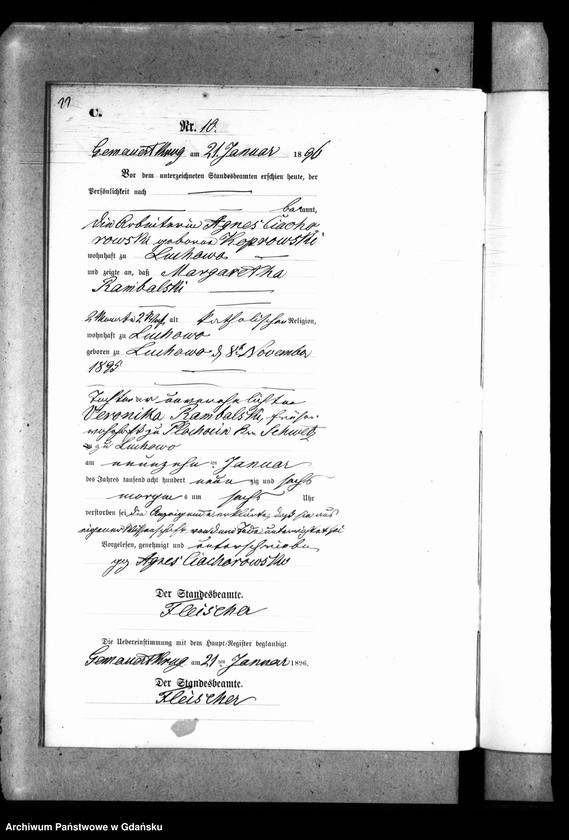 11
C.
Nr. 10.
Gemauert Krug am 21. Januar 1896
Vor dem unterzeichneten Standesbeamten erschien heute, der
Persönlichkeit nach
bekannt,
die Arbeiterin Agnes Ciacho-
rowski geborene Keprowski
wohnhaft zu Luchowo
und zeigte an, daß Margaretha
Rambalski
2 Monate alt katholischer Religion,
wohnhaft zu Luchowo
geboren zu Luchowo d. 8t November
1895
Tochter der unverehelichten
Veronika Rambalski, früher
wohnhaft zu Kr. Schwetz
zu Luchowo
am neunzehnten Januar
des Jahres tausend acht hundert neunzig und sechs
morgens um sechs Uhr
verstorben sei, die Anzeigende erklärte, daß sie aus
eigener Wissenschaft von dem Tode unterrichtet sei
Vorgelesen, genehmigt und unterschrieben
gez Agnes Ciachorowski
Der Standesbeamte.
Fleischer
Die Uebereinstimmung mit dem Haupt-Register beglaubigt
Gemauert Krug am 21ten Januar 1896.
Der Standesbeamte.
Fleischer
Archiwum Państwowe w Gdańsku